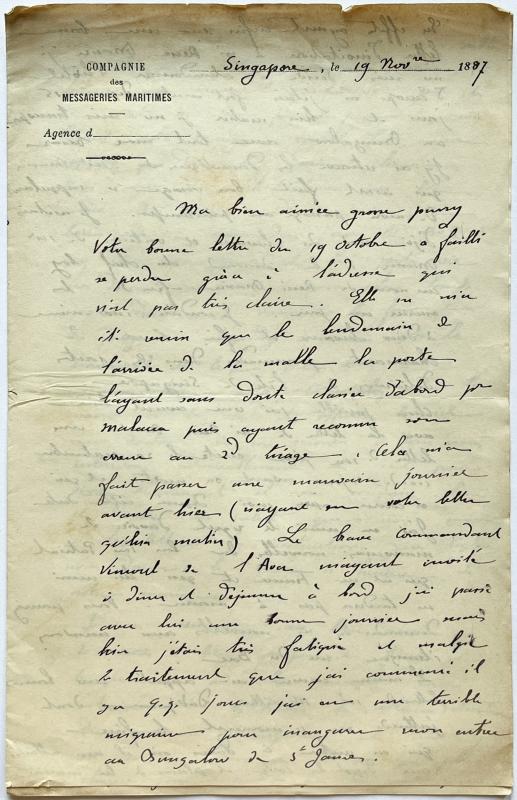 COMPAGNIE
des
MESSAGERIES MARITIMES
Agence d
Singapore, le 19 Nov^re 1887
Ma bien aimée grosse pussy
Votre bonne lettre du 19 octobre a failli
se perdre grâce à l'adresse qui
n'est pas très claire. Elle ne m'a
été remise que le lendemain de
l'arrivée de la malle la poste
l'ayant sans doute classée d'abord pr
Malacca puis ayant reconnu son
erreur au 2^d triage. Cela m'a
fait passer une mauvaise journée
avant hier (n'ayant eu votre lettre
qu'hier matin) Le brave commandant
de l'Ava m'ayant invité
à diner et déjeuner à bord j'ai passé
avec lui une bonne journée mais
hier j'étais très fatiguée et malgré
le traitement que j'ai commencé il
y a q.q. jours j'ai eu une terrible
migraine pour inaugurer mon entrée
au Bungalow de St James.